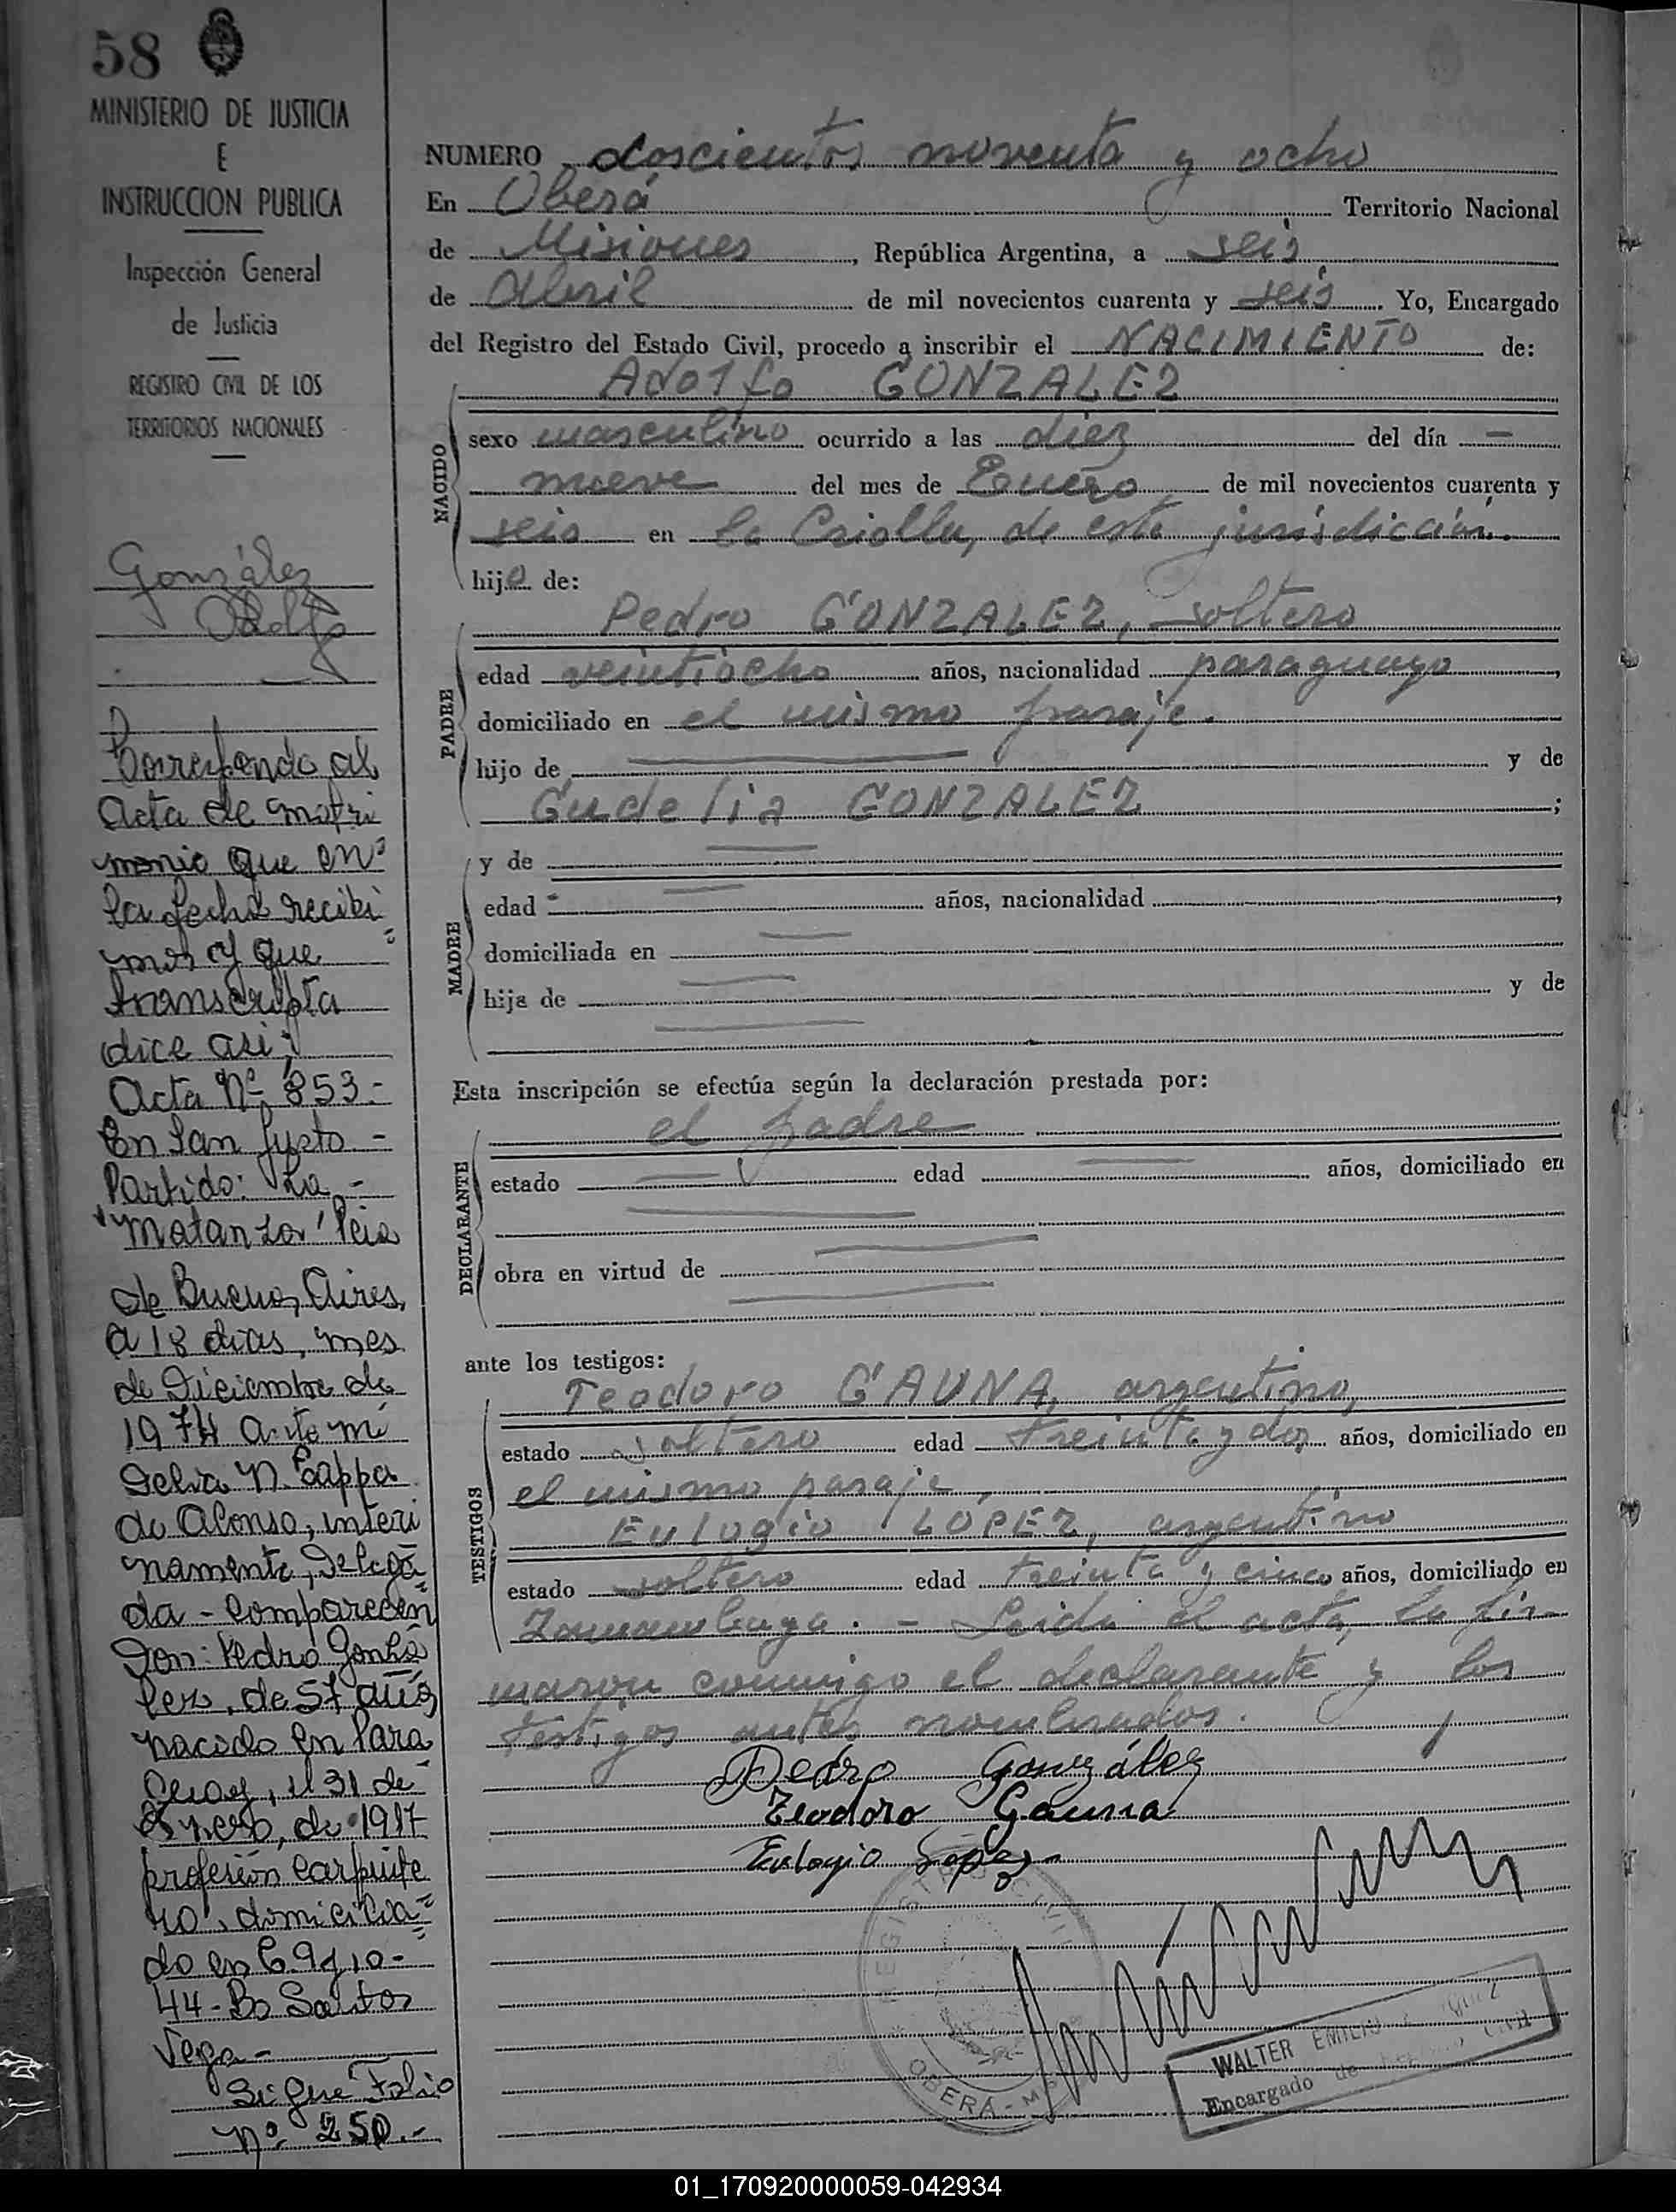 58
MINISTERIO DE JUSTICIA
E
INSTRUCCION PUBLICA
Inspección General
de Justicia
REGISTRO CIVIL DE LOS
TERRITORIOS NACIONALES
González
Adolfo
Corresponde al
acta de matri
monio que en
la fecha recibi
mos y que
transcripta
dice asi;
Acta Nº 853.-
En San Justo -
Partido: La -
"Matanza" Pcia
de Buenos Aires,
a 18 dias, mes
de Diciembre de
1974 ante mi
Selva N. Cappa
de Alonso, interi
namente, Delega
da - comparecen
Don: Pedro Gonzá
lez, de 57 años
nacido en Para
guay, el 31 de
Enero, de 1917
profesión carpinte
ro, domicilia
do en C. 9 y 10 -
44 - Bo Santos
Vega -
Sigue Folio
Nº 250.-
NUMERO doscientos noventa y ocho
En Oberá Territorio Nacional
de Misiones, República Argentina, a seis
de Abril de mil novecientos cuarenta y seis. Yo, Encargado
del Registro del Estado Civil, procedo a inscribir el NACIMIENTO de:
Adolfo GONZALEZ
NACIDO
sexo masculino ocurrido a las diez del día —
nueve del mes de Enero de mil novecientos cuarenta y
seis en la Criolla, de esta jurisdicción.
hijo de:
Pedro GONZALEZ, soltero
PADRE
edad veintiocho años, nacionalidad paraguayo,
domiciliado en el mismo paraje.
hijo de y de
Gudelia GONZALEZ;
y de
MADRE
edad años, nacionalidad,
domiciliada en
hija de y de
Esta inscripción se efectúa según la declaración prestada por:
el padre
DECLARANTE
estado edad años, domiciliado en
obra en virtud de
ante los testigos:
Teodoro GAUNA, argentino,
TESTIGOS
estado soltero edad treinta y dos años, domiciliado en
el mismo paraje
Eulogio LÓPEZ, argentino
estado soltero edad treinta y cinco años, domiciliado en
. - Leida el acta, la fir-
maron conmigo el declarante y los
testigos antes nombrados.
Pedro González
Teodoro Gauna
Eulogio Lopez
REGISTRO CIVIL
OBERÁ - M
WALTER EMILIO
Encargado de Registro Civil
01_170920000059-042934